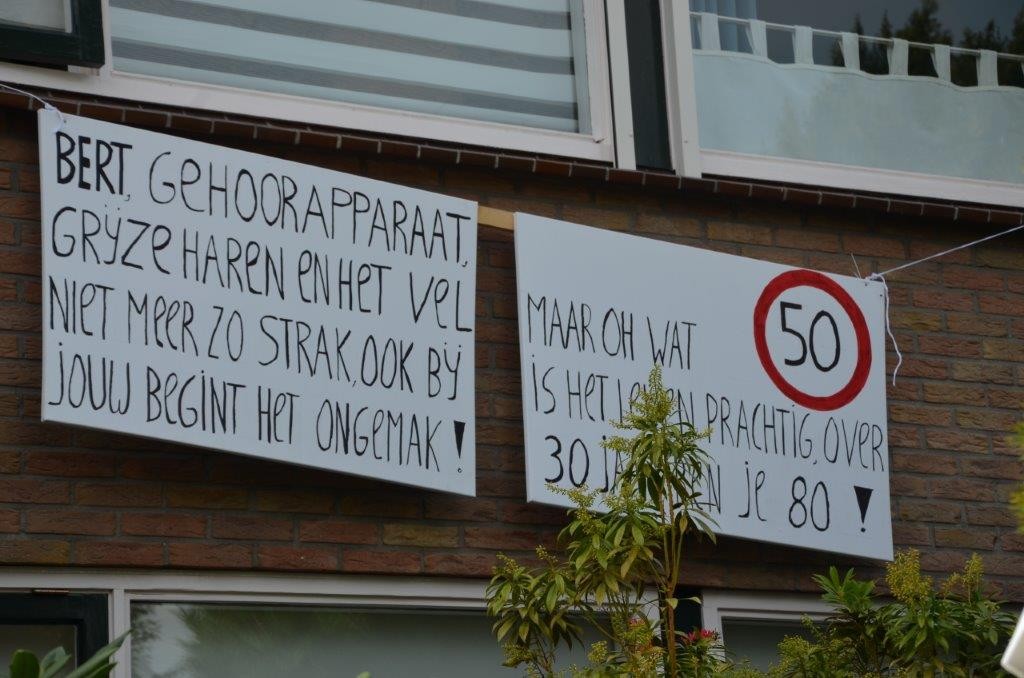 BERT, GEHOORAPPARAAT,
GRIJZE HAREN EN HET VEL
NIET MEER ZO STRAK, OOK BIJ
JOUW BEGINT HET ONGEMAK !
50
MAAR OH WAT
IS HET PRACHTIG, OVER
30 JE 80 !